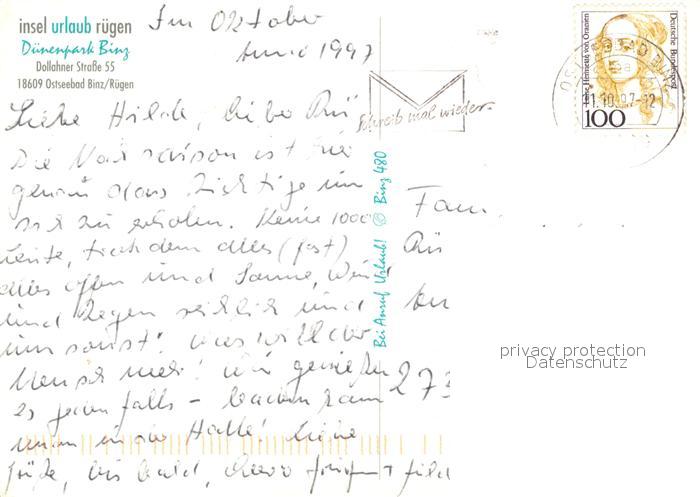 insel urlaub rügen
Dünenpark Binz
Dollahner Straße 55
18609 Ostseebad Binz/Rügen
Im Oktober
anno 1997
Schreib mal wieder
Luise Henriette von Oranien
Deutsche Bundespost
100
OSTSEEBAD BINZ
Liebe Hilde, lieber Rü
Die Nachsaison ist hier
genau das Richtige um
sich zu erholen. Keine 1000
Leute, trotzdem alles (fast)
alles offen und Sonne, Wind
und Regen reichlich und
umsonst! Was will der
Mensch mehr! Wir genießen
es jedenfalls -
in der Halle! Liebe
Grüße, bis bald,
Bei Anruf Urlaub! Binz 480
Fam.
Rü
273
privacy protection
Datenschutz